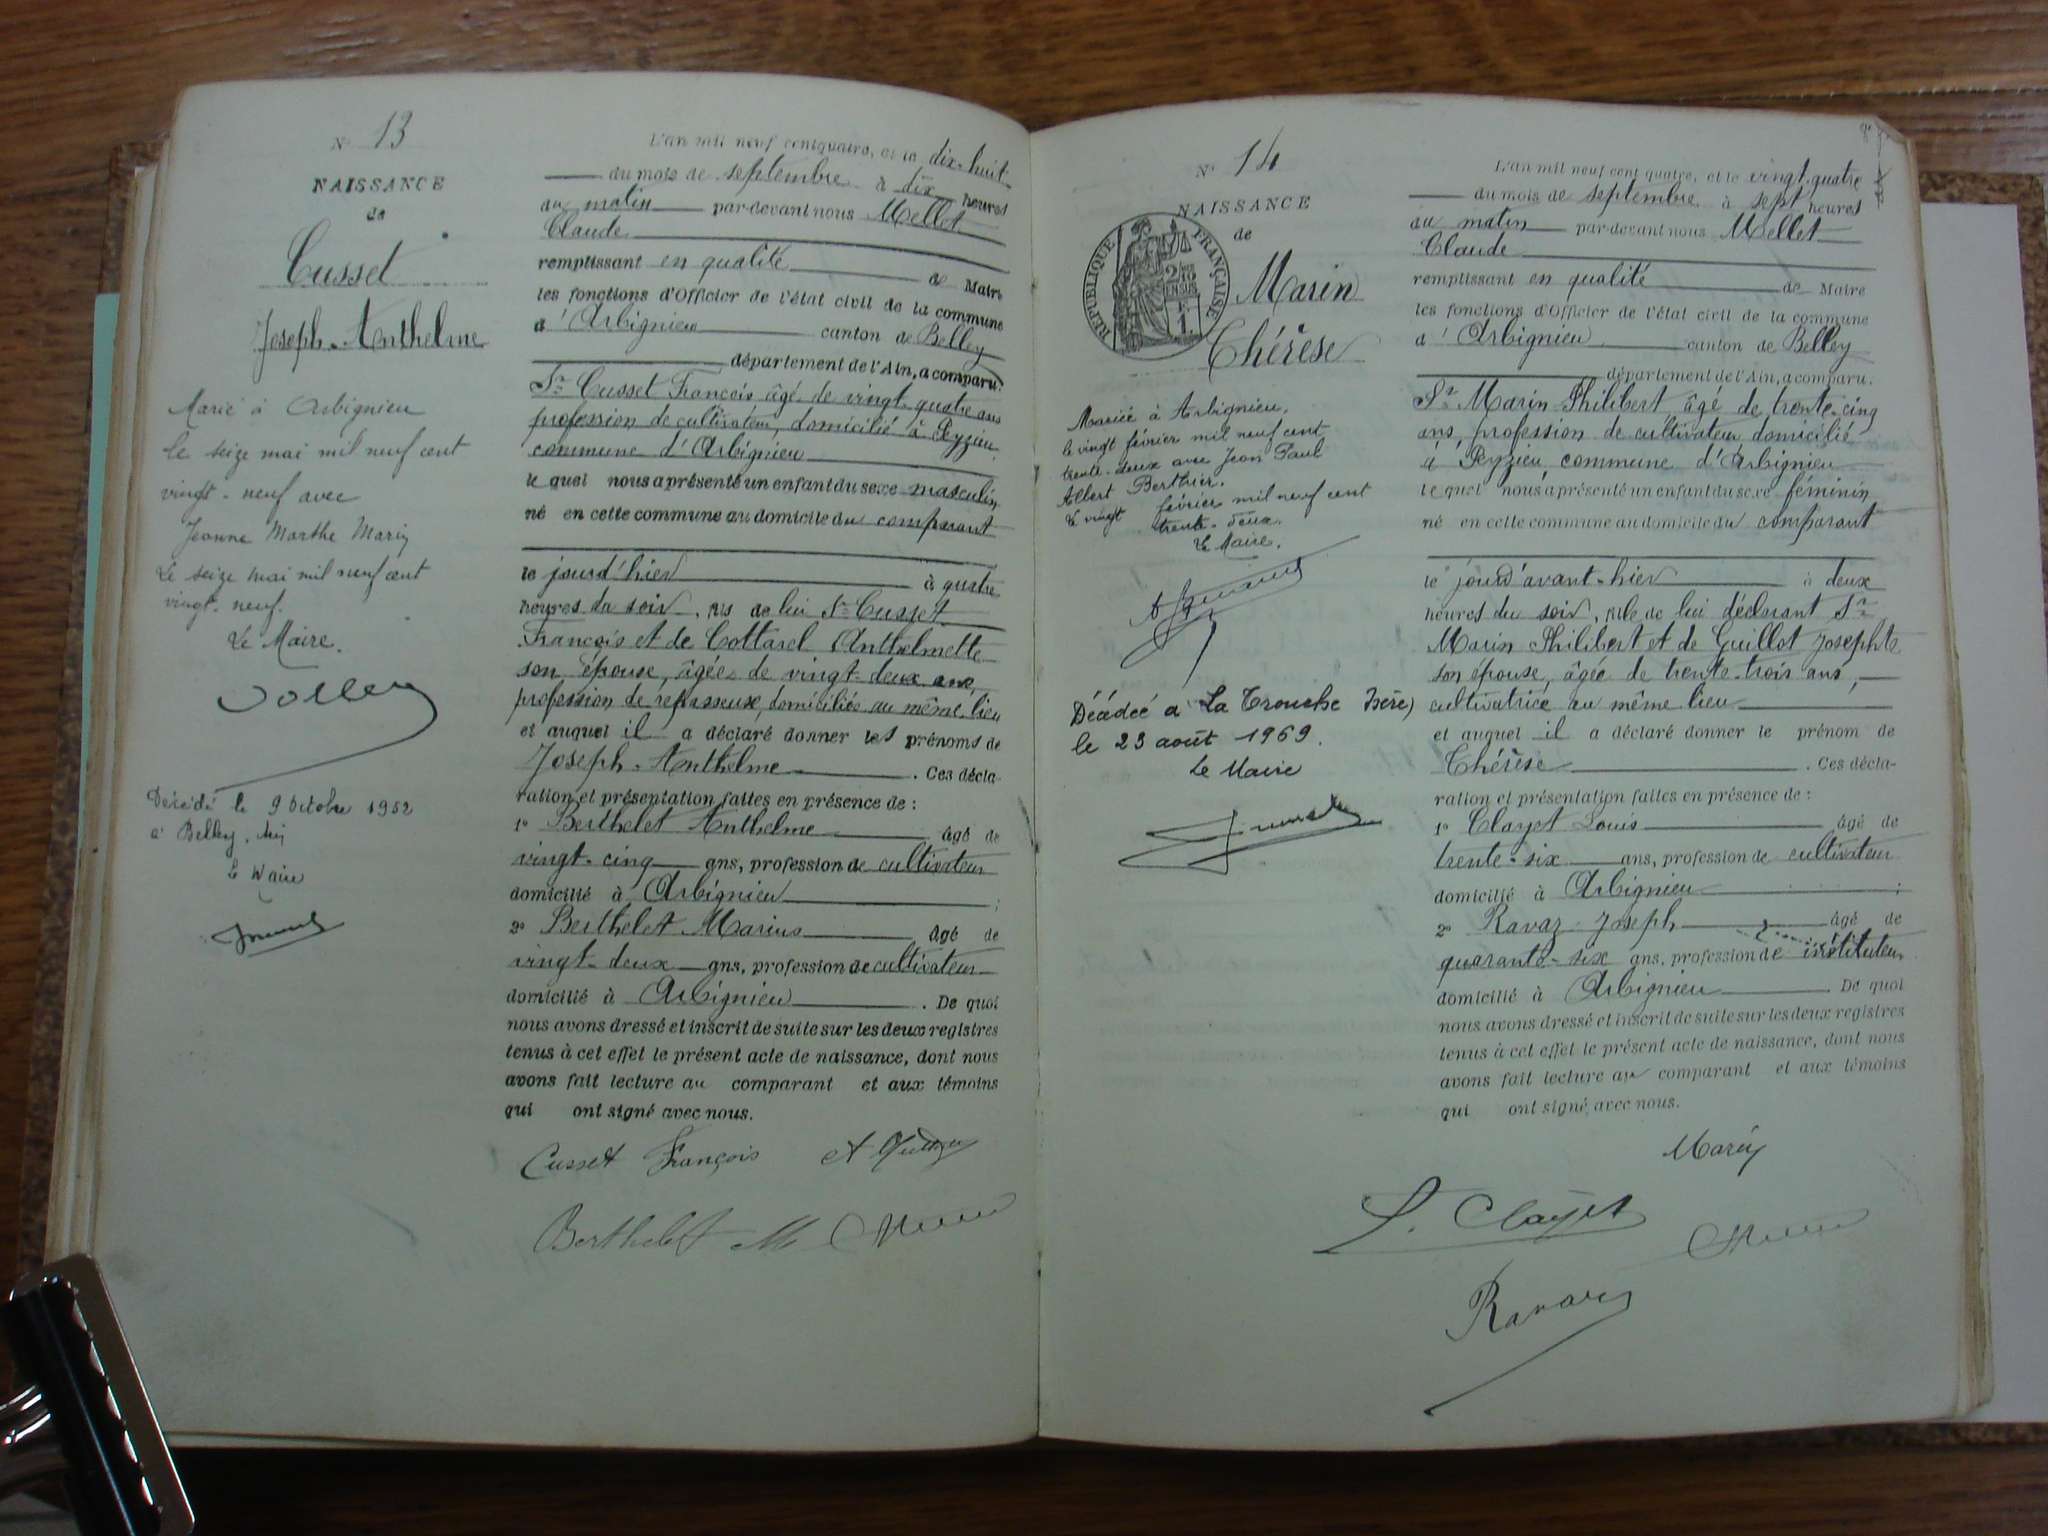 N° 13
NAISSANCE
de
Cusset
Joseph-Anthelme
Marié à Arbignieu
le seize mai mil neuf cent
vingt-neuf avec
Jeanne Marthe Marin
Le seize mai mil neuf cent
vingt-neuf.
Le Maire.
Décédé le 9 Octobre 1952
à Belley, Ain
Le Maire
L'an mil neuf cent quatre, et le dix-huit
du mois de septembre à dix heures
du matin par-devant nous Mellet
Claude
remplissant en qualité de Maire
les fonctions d'Officier de l'état civil de la commune
d'Arbignieu canton de Belley
département de l'Ain, a comparu.
Sr Cusset François âgé de vingt-quatre ans
profession de cultivateur, domicilié à Peyzieu
commune d'Arbignieu
lequel nous a présenté un enfant du sexe masculin,
né en cette commune au domicile du comparant
le jour d'hier à quatre
heures du soir, fils de lui Sr Cusset
François et de Cottarel Anthelmette
son épouse, âgée de vingt-deux ans,
profession de repasseuse, domiciliée au même lieu
et auquel il a déclaré donner les prénoms de
Joseph-Anthelme . Ces décla-
ration et présentation faites en présence de :
1° Berthelet Anthelme âgé de
vingt-cinq ans, profession de cultivateur
domicilié à Arbignieu ;
2° Berthelet Marius âgé de
vingt-deux ans, profession de cultivateur
domicilié à Arbignieu . De quoi
nous avons dressé et inscrit de suite sur les deux registres
tenus à cet effet le présent acte de naissance, dont nous
avons fait lecture au comparant et aux témoins
qui ont signé avec nous.
Cusset François
Berthelet M
N° 14
NAISSANCE
de
RÉPUBLIQUE FRANÇAISE
Marin
Thérèse
Mariée à Arbignieu,
le vingt février mil neuf cent
trente-deux avec Jean Paul
Albert Berthier.
Le vingt février mil neuf cent
trente-deux.
Le Maire.
Décédée à La Tronche Isère)
le 23 août 1969.
Le Maire
L'an mil neuf cent quatre, et le vingt-quatre
du mois de septembre à sept heures
du matin par-devant nous Mellet
Claude
remplissant en qualité de Maire
les fonctions d'Officier de l'état civil de la commune
d'Arbignieu canton de Belley
département de l'Ain, a comparu.
Sr Marin Philibert âgé de trente-cinq
ans, profession de cultivateur domicilié
à Peyzieu, commune d'Arbignieu
lequel nous a présenté un enfant du sexe féminin
né en cette commune au domicile du comparant
le jour d'avant-hier à deux
heures du soir, fille de lui déclarant Sr
Marin Philibert et de Guillot Josephte
son épouse, âgée de trente-trois ans,
cultivatrice au même lieu
et auquel il a déclaré donner le prénom de
Thérèse . Ces décla-
ration et présentation faites en présence de :
1° Clayet Louis âgé de
trente-six ans, profession de cultivateur
domicilié à Arbignieu ;
2° Ravaz Joseph âgé de
quarante-six ans, profession de instituteur
domicilié à Arbignieu . De quoi
nous avons dressé et inscrit de suite sur les deux registres
tenus à cet effet le présent acte de naissance, dont nous
avons fait lecture au comparant et aux témoins
qui ont signé avec nous.
Marin
L. Clayet
Ravaz